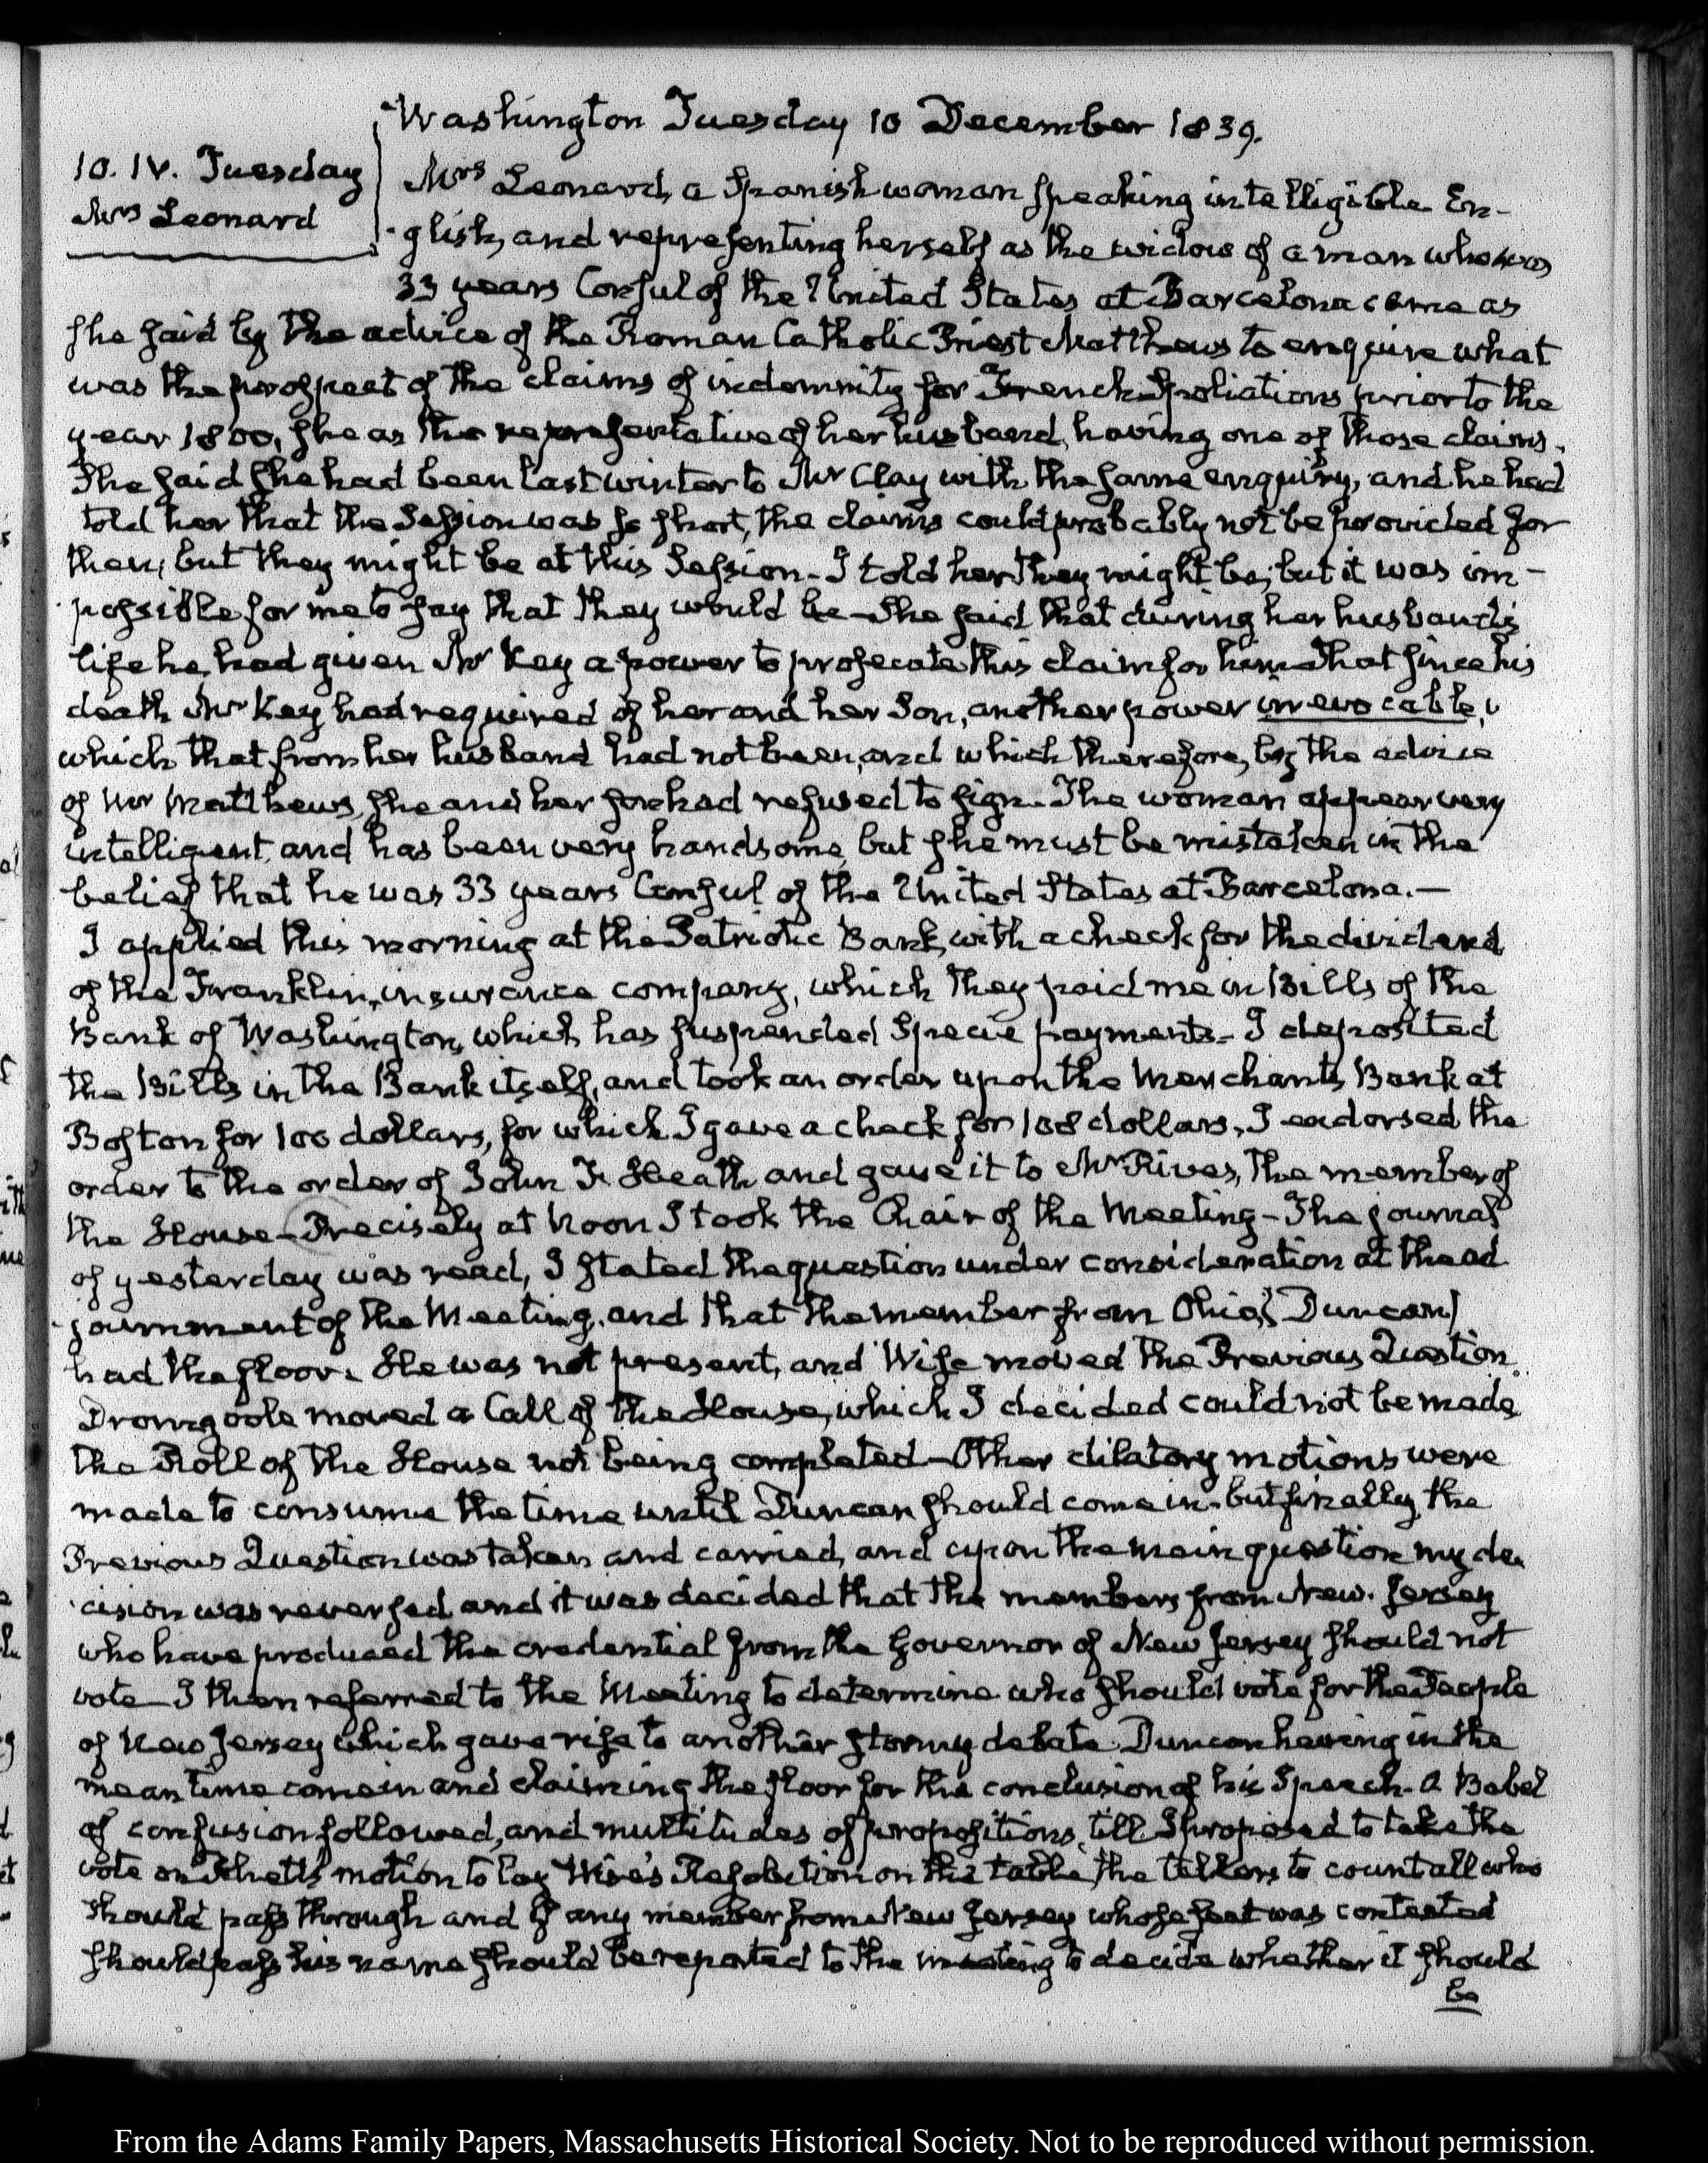 Washington Tuesday 10 December 1839.
10. IV. Tuesday
Mrs Leonard
Mrs Leonard, a Spanish woman speaking intelligible En-
glish, and representing herself as the widow of a man who was
33 years Consul of the United States at Barcelona came as
she said by the advice of the Roman Catholic Priest Matthews to enquire what
was the prospect of the claims of indemnity for French Spoliations prior to the
year 1800, she as the representative of her husband, having one of those claims.
She said she had been last winter to Mr Clay with the same enquiry, and he had
told her that the Session was so short, the claims could probably not be provided for
then, but they might be at this Session - I told her they might be, but it was im-
possible for me to say that they would be - She said that during her husband's
life he had given Mr Key a power to prosecute this claim for him - That since his
death Mr Key had required of her and her Son, another power irrevocable,
which that from her husband had not been, and which therefore, by the advice
of Mr Matthews, she and her son had refused to sign - The woman appear very
intelligent, and has been very handsome, but she must be mistaken in the
belief that he was 33 years Consul of the United States at Barcelona. —
I applied this morning at the Patriotic Bank, with a check for the dividend
of the Franklin, insurance company, which they paid me in Bills of the
Bank of Washington, which has suspended Specie payments - I deposited
the Bills in the Bank itself, and took an order upon the Merchants Bank at
Boston for 100 dollars, for which I gave a check for 108 dollars, I endorsed the
order to the order of John F. Heath and gave it to Mr Rives, the member of
the House - Precisely at Noon I took the Chair of the Meeting - The journal
of yesterday was read, I stated the question under consideration at the ad
journment of the Meeting, and that the member from Ohio, Duncan,
had the floor. He was not present, and Wise moved the Previous Question.
Dromgoole moved a Call of the House, which I decided could not be made,
the Roll of the House not being completed - Other dilatory motions were
made to consume the time until Duncan should come in - but finally, the
Previous Question was taken and carried, and upon the main question my de
cision was reversed and it was decided that the members from New-Jersey
who have produced the credential from the Governor of New Jersey should not
vote - I then referred to the Meeting to determine who should vote for the People
of New Jersey which gave rise to another stormy debate Duncan having in the
mean time come in and claiming the floor for the conclusion of his Speech - A Babel
of confusion followed, and multitudes of propositions, till I proposed to take the
vote on Rhett's motion to lay Wise's Resolution on the table, the tellers to count all who
should pass through and if any member from New Jersey whose seat was contested
should pass his name should be reported to the meeting to decide whether it should
be
From the Adams Family Papers, Massachusetts Historical Society. Not to be reproduced without permission.